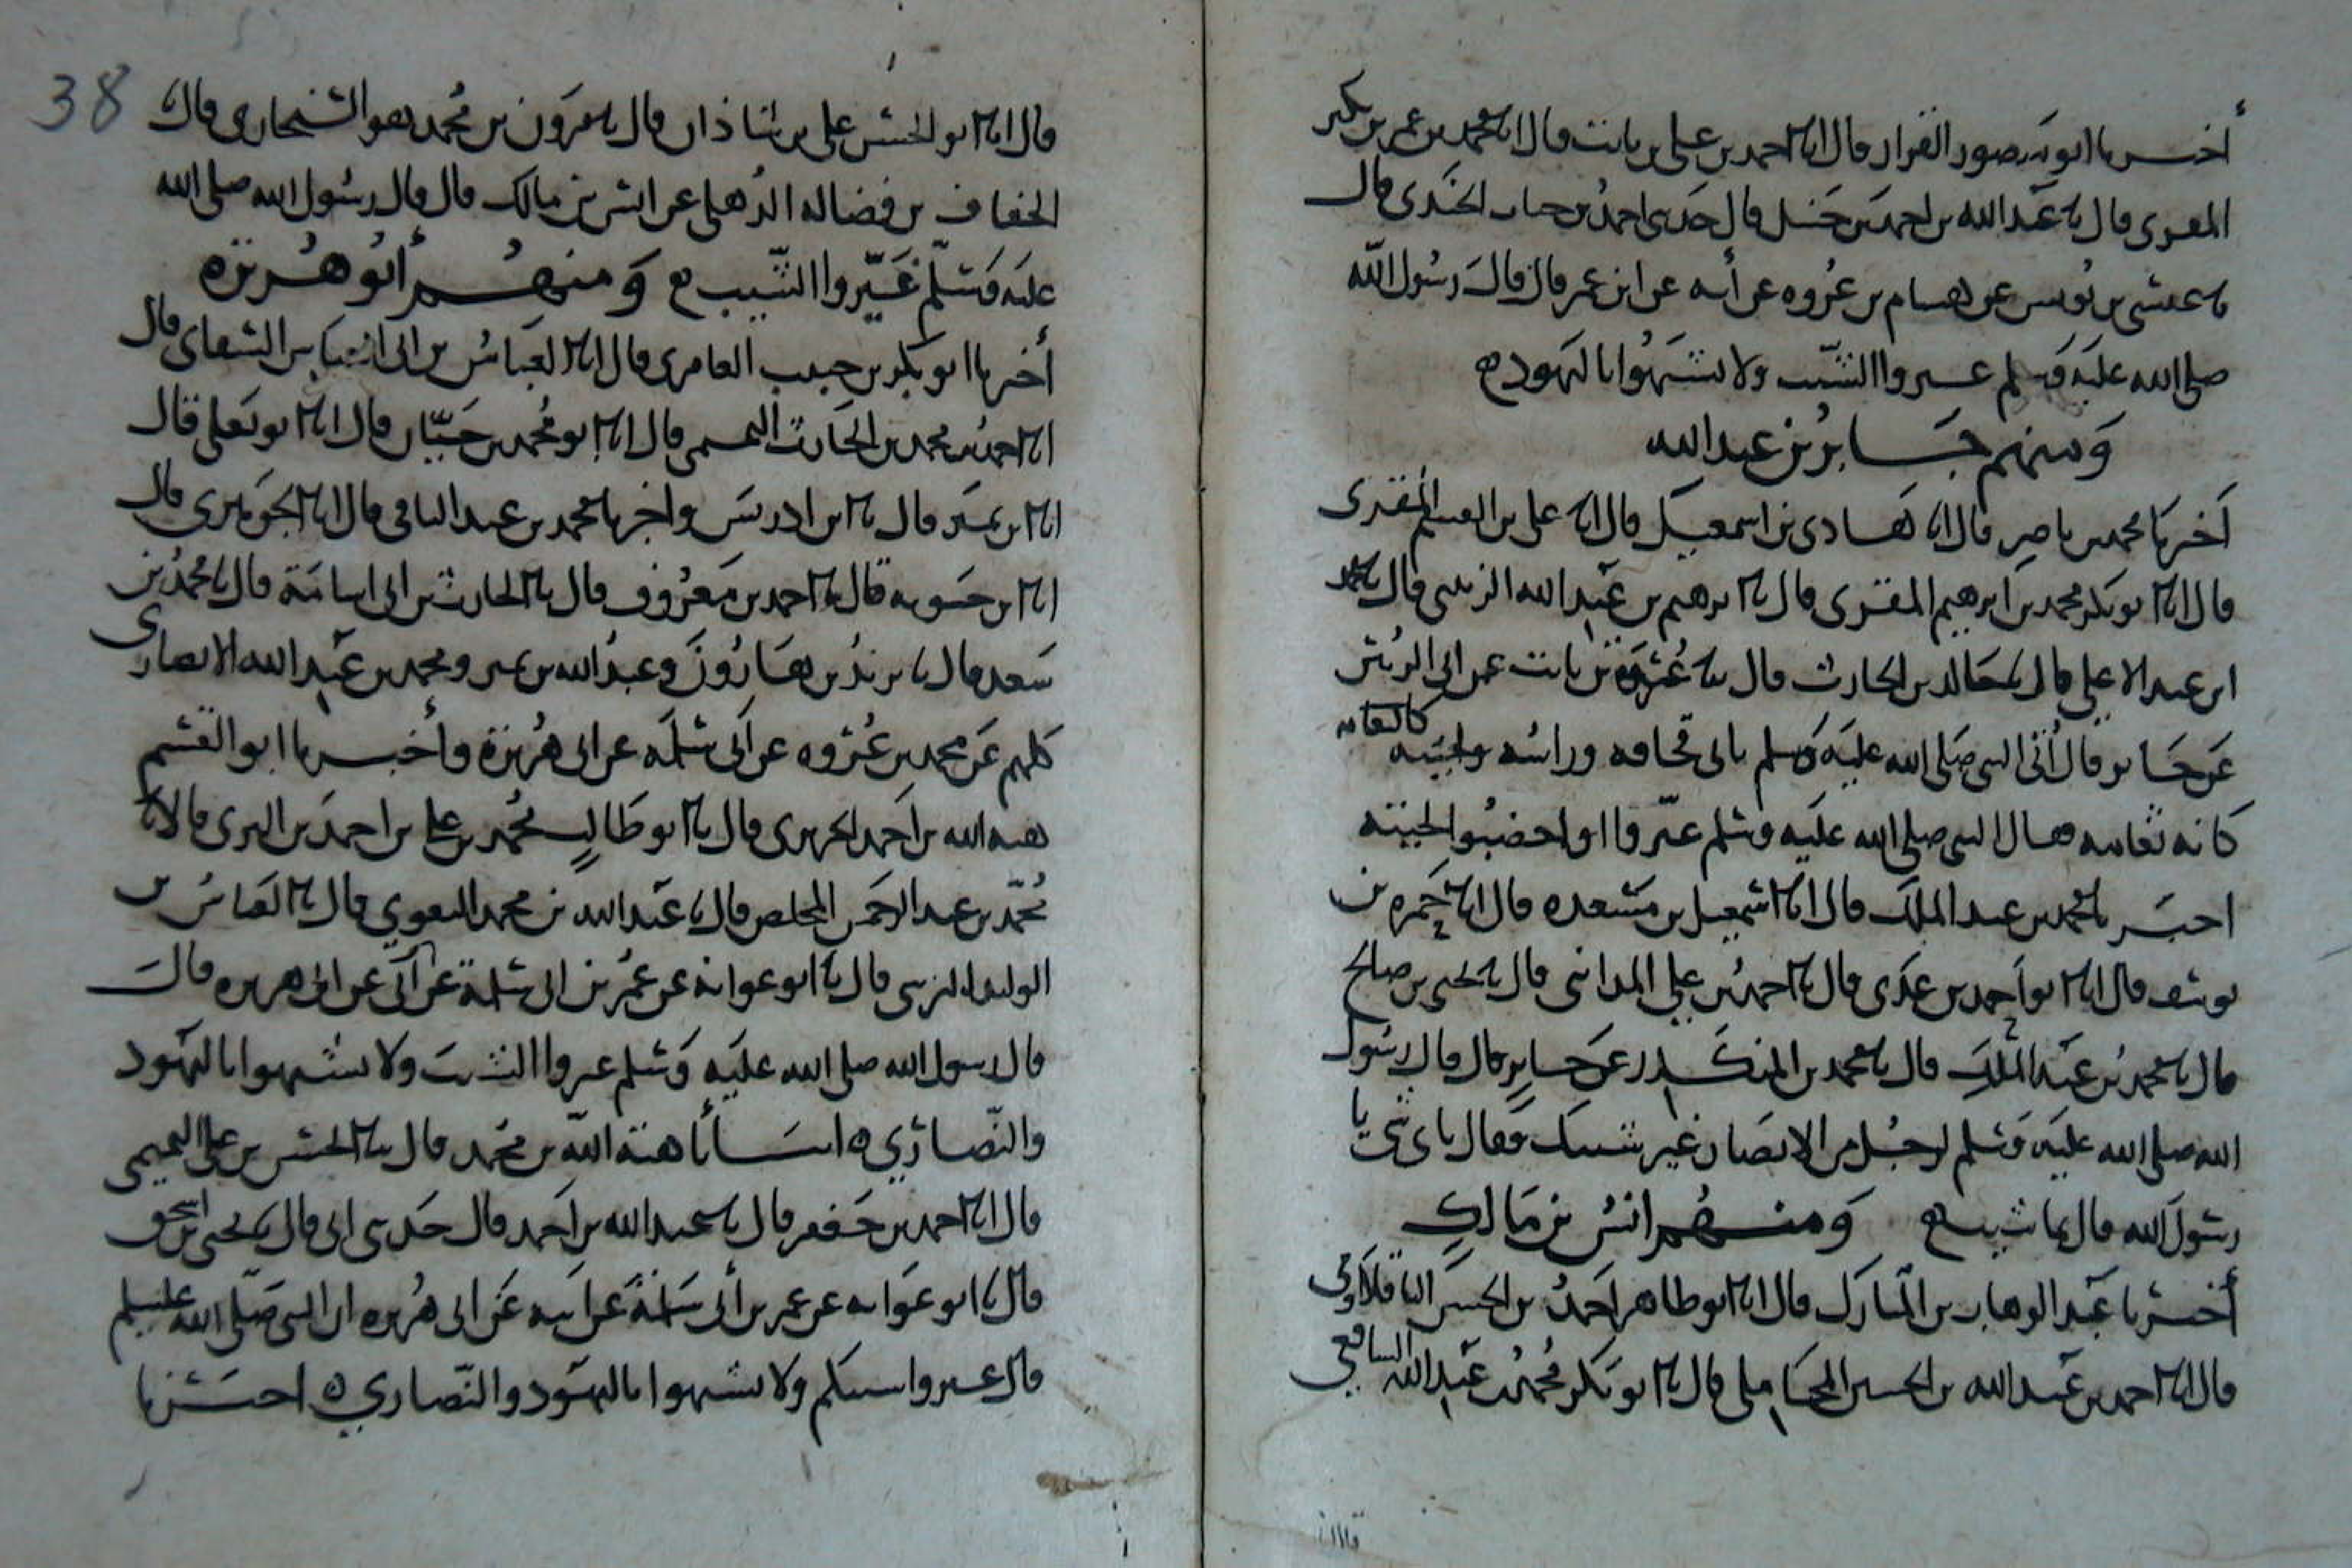 أخبرنا ابو منصور القزاز قال انا احمد بن علي بن ثابت قال انا محمد بن عمر بن بكير
المقرى قال نا عبد الله بن احمد بن حنبل قال حدثني احمد بن جناب قال
نا عيسى بن يونس عن هشام بن عروه عن أبيه عن ابن عمر قال قال رسول الله
صلى الله عليه وسلم غيروا الشيب ولا تشبهوا باليهود
ومنهم جابر بن عبد الله
أخبرنا محمد بن ناصر قال انا هادى بن اسمعيل قال انا على بن القسم المقرى
قال انا ابو بكر محمد بن ابرهيم المقرى قال نا ابرهيم بن عبد الله الزبيبى قال نا محمد
ابن عبد الاعلى قال نا خالد بن الحارث قال نا عزرة بن ثابت عن ابى الزبير
عن جابر قال أتى النبى صلى الله عليه وسلم بابى قحافه وراسه ولحيته
كانه ثغامه فقال النبى صلى الله عليه وسلم غيروا او اخضبوا لحيته
اخبرنا محمد بن عبد الملك قال انا اسمعيل بن مسعده قال انا حمزه بن
يوسف قال انا ابو احمد بن عدى قال نا احمد بن علي المدائنى قال نا يحيى بن صالح
قال نا محمد بن عبد الملك قال نا محمد بن المنكدر عن جابر قال قال رسول
الله صلى الله عليه وسلم لرجل من الانصار غير شيبك فقال باى شى يا
رسول الله قال بما شيت ومنهم انس بن مالك
أخبرنا عبد الوهاب بن المبارك قال انا ابو طاهر احمد بن الحسن الباقلاوى
قال انا احمد بن عبد الله بن الحسين المحاملى قال نا ابو بكر محمد بن عبد الله الشافعي
قال
38
قال انا ابو الحسن على بن شاذان قال نا هرون بن محمد هو السنجارى قال نا
الخفاف بن فضاله الذهلى عن انس بن مالك قال قال رسول الله صلى الله
عليه وسلم غيّروا الشيب ومنهم أبو هريرة
أخبرنا ابو بكر بن حبيب العامرى قال انا العباس بن ابى العباس الشقاى قال
انا احمد بن محمد بن الحارث التميمى قال انا ابو محمد بن حيّان قال انا ابو يعلى قال
انا بن نمير قال نا ابن ادريس واخبرنا محمد بن عبد الباقى قال انا الجوهرى قال
انا بن حيويه قال نا احمد بن معروف قال نا الحارث بن ابى اسامة قال نا محمد بن
سعد قال نا يزيد بن هارون وعبد الله بن نمير ومحمد بن عبد الله الانصارى
كلهم عن محمد بن عمرو عن أبى سلمه عن ابى هريرة وأخبرنا ابو القسم
هبه الله بن احمد الحريرى قال نا ابو طالب محمد بن على بن احمد قالا نا
محمد بن عبد الرحمن المخلص قال نا عبد الله بن محمد البغوي قال نا العباس بن
الوليد النرسى قال نا ابو عوانه عن عمر بن ابى سلمة عن أبيه عن ابى هريره قال
قال رسول الله صلى الله عليه وسلم غيروا الشيب ولا تشبهوا باليهود
والنّصارى انبأنا هبة الله بن محمد قال نا الحسن بن على التميمى
قال انا احمد بن جعفر قال نا عبد الله بن احمد قال حدثنى ابى قال نا يحيى بن اسحق
قال نا ابو عوانه عن عمر بن أبى سلمة عن ابيه عن ابى هريره ان النبى صلى الله عليه وسلم
قال غيروا شيبكم ولا تشبهوا باليهود والنّصارى اخبرنا